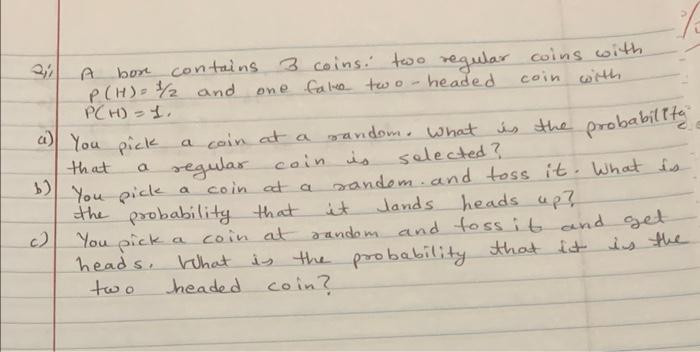 2; A box contains 3 coins: two regular coins with
P(H) = 1/2 and one fake two-headed coin with
P(H) = 1.
a) You pick a coin at a random. What is the probability
that a regular coin is selected?
b) You pick a coin at a random and toss it. What is
the probability that it lands heads up?
c) You pick a coin at random and toss it and get
heads. What is the probability that it is the
two headed coin?